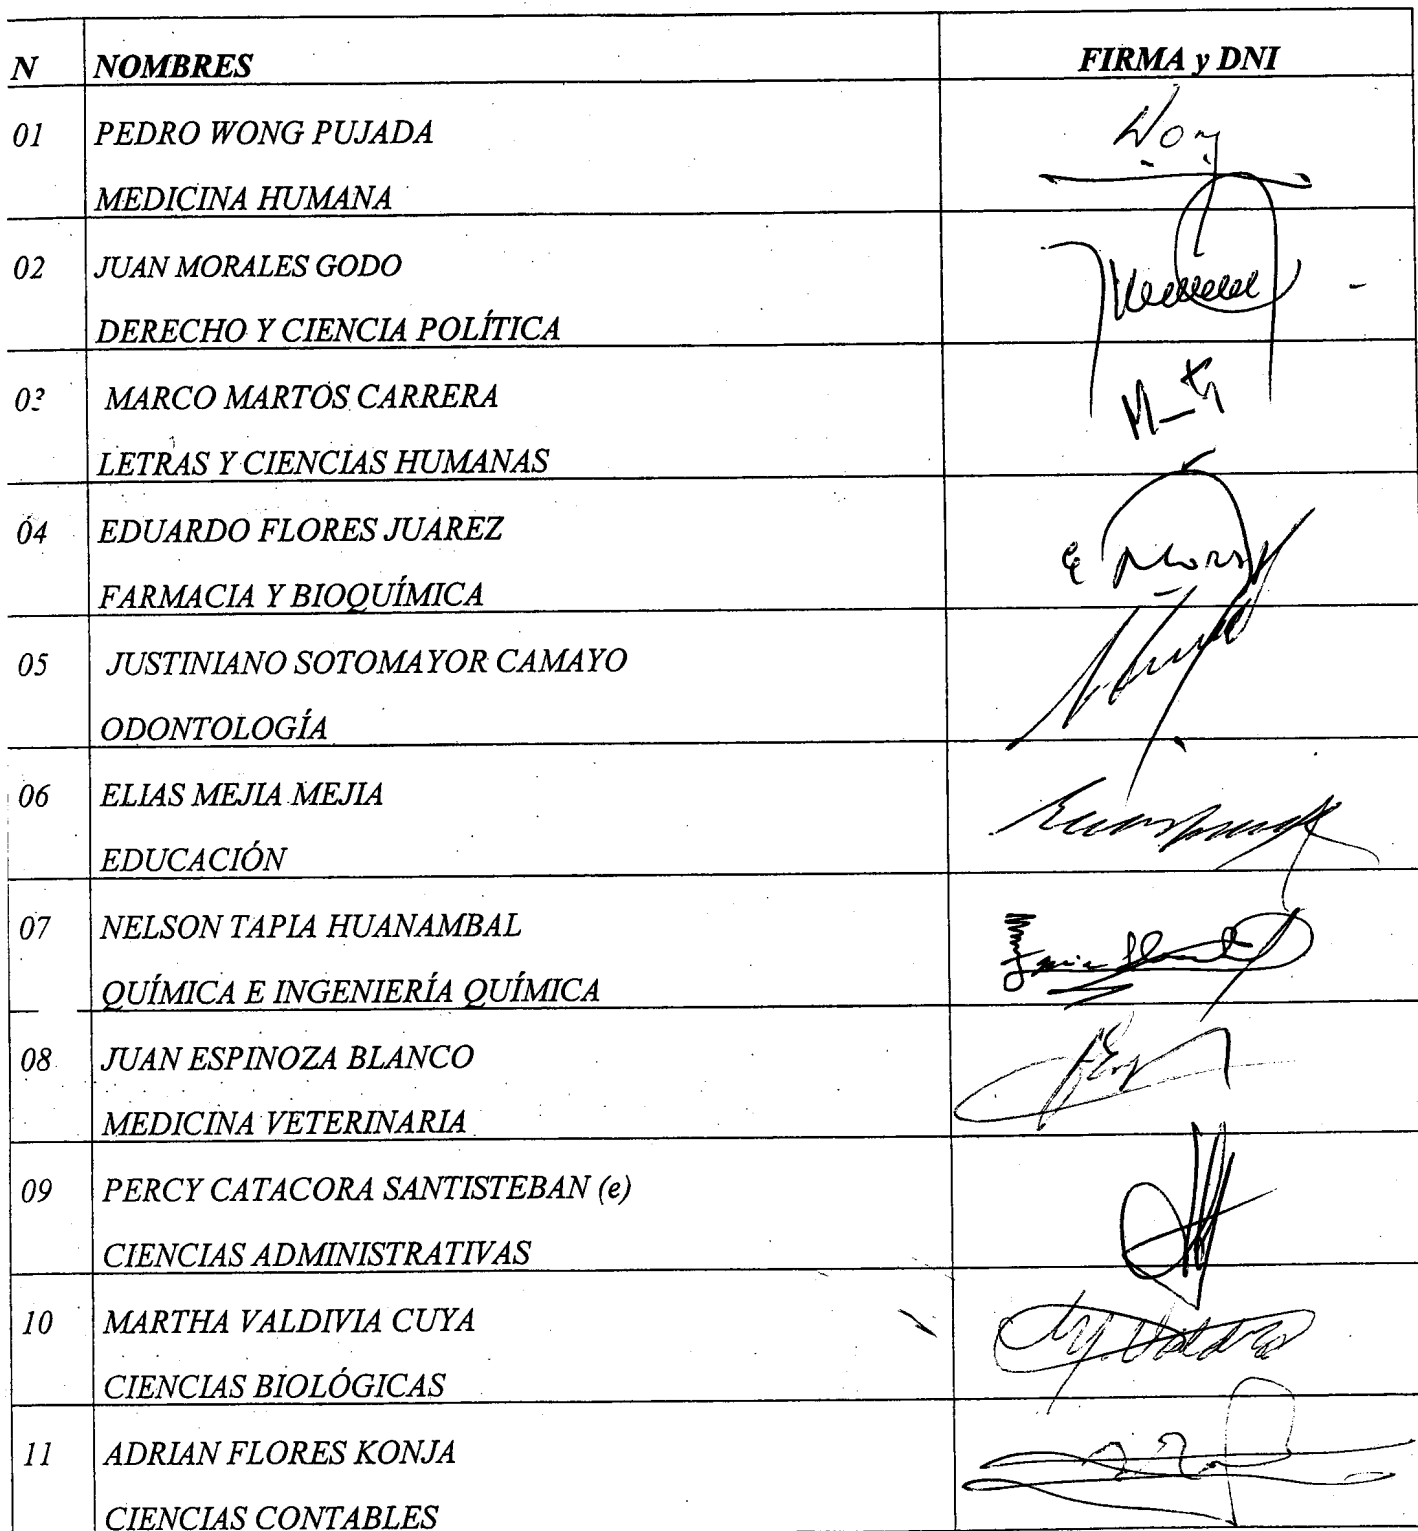 N NOMBRES FIRMA y DNI
01 PEDRO WONG PUJADA Wong
MEDICINA HUMANA
02 JUAN MORALES GODO
DERECHO Y CIENCIA POLÍTICA
03 MARCO MARTOS CARRERA
LETRAS Y CIENCIAS HUMANAS
04 EDUARDO FLORES JUAREZ E Flores
FARMACIA Y BIOQUÍMICA
05 JUSTINIANO SOTOMAYOR CAMAYO
ODONTOLOGÍA
06 ELIAS MEJIA MEJIA
EDUCACIÓN
07 NELSON TAPIA HUANAMBAL
QUÍMICA E INGENIERÍA QUÍMICA
08 JUAN ESPINOZA BLANCO
MEDICINA VETERINARIA
09 PERCY CATACORA SANTISTEBAN (e)
CIENCIAS ADMINISTRATIVAS
10 MARTHA VALDIVIA CUYA
CIENCIAS BIOLÓGICAS
11 ADRIAN FLORES KONJA
CIENCIAS CONTABLES